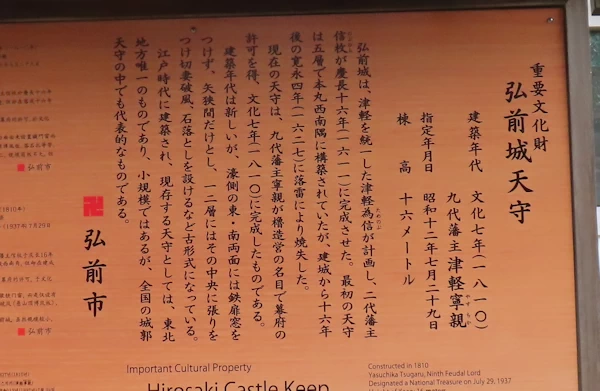 重要文化財
弘前城天守
建築年代　文化七年(一八一〇)
九代藩主津軽寧親
やすちか
指定年月日　昭和十二年七月二十九日
棟　高　十六メートル
弘前城は、津軽を統一した津軽為信が計画し、二代藩主
ためのぶ
信枚が慶長十六年(一六一一)に完成させた。最初の天守
は五層で本丸西南隅に構築されていたが、建城から十六年
後の寛永四年(一六二七)に落雷により焼失した。
現在の天守は、九代藩主寧親が櫓造営の名目で幕府の
許可を得、文化七年(一八一〇)に完成したものである。
建築年代は新しいが、濠側の東・南両面には鉄扉窓を
つけず、矢狭間だけとし、一二層にはその中央に張りを
つけ切妻破風、石落としを設けるなど古形式になっている。
江戸時代に建築され、現存する天守としては、東北
地方唯一のものであり、小規模ではあるが、全国の城郭
天守の中でも代表的なものである。
卍 弘前市
Important Cultural Property
Hirosaki Castle Keep
Constructed in 1810
Yasuchika Tsugaru, Ninth Feudal Lord
Designated a National Treasure on July 29, 1937
弘前市
弘前市